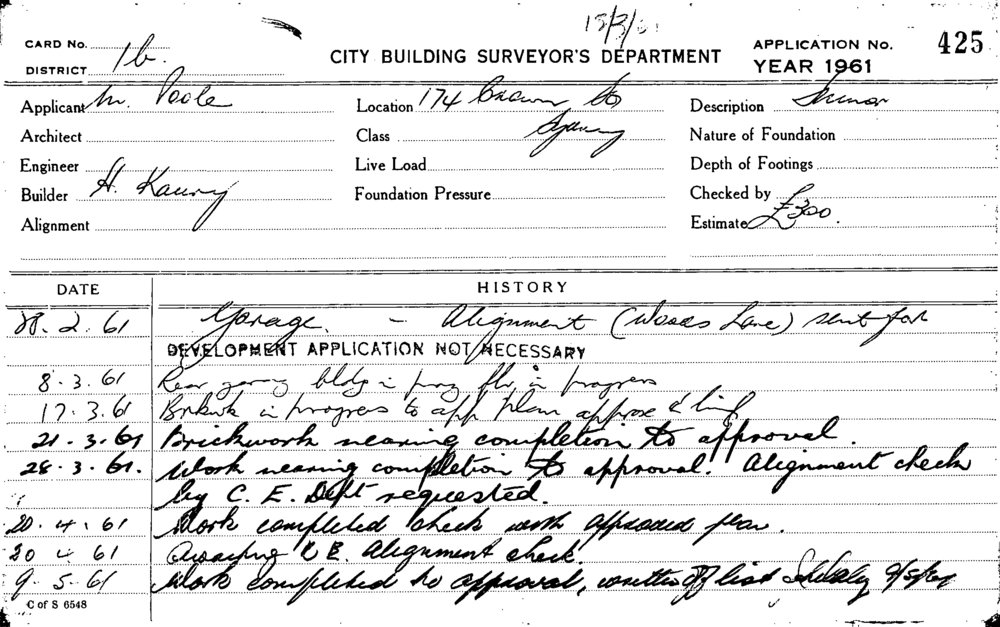 CARD No. 1b.
DISTRICT
CITY BUILDING SURVEYOR'S DEPARTMENT
APPLICATION No. 425
YEAR 1961
Applicant M. Poole
Location 174 Crown St
Description
Architect
Class
Nature of Foundation
Engineer
Live Load
Depth of Footings
Builder H.
Foundation Pressure
Checked by
Alignment
Estimate £300.
DATE HISTORY
28.2.61 Garage. - Alignment (Woods Lane) sent for
DEVELOPMENT APPLICATION NOT NECESSARY
8.3.61 Rear bldg in progress
17.3.61 in progress to app plan
21.3.61 Brickwork nearing completion to approval.
28.3.61. Work nearing completion to approval. Alignment check
by C. E. Dept requested.
20.4.61 Work completed check with approved plan.
20 4 61 Awaiting C E. Alignment check
9.5.61 Work completed to approval, written off list 9/5/61
C of S 6548